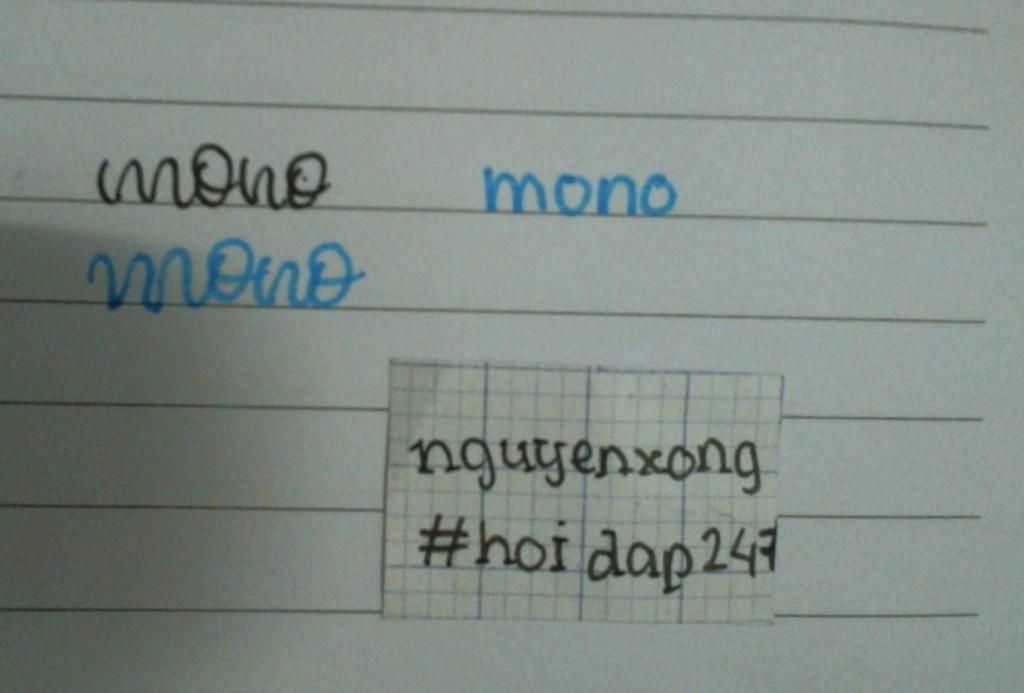 mono mono
mono
nguyenxong
#hoidap247